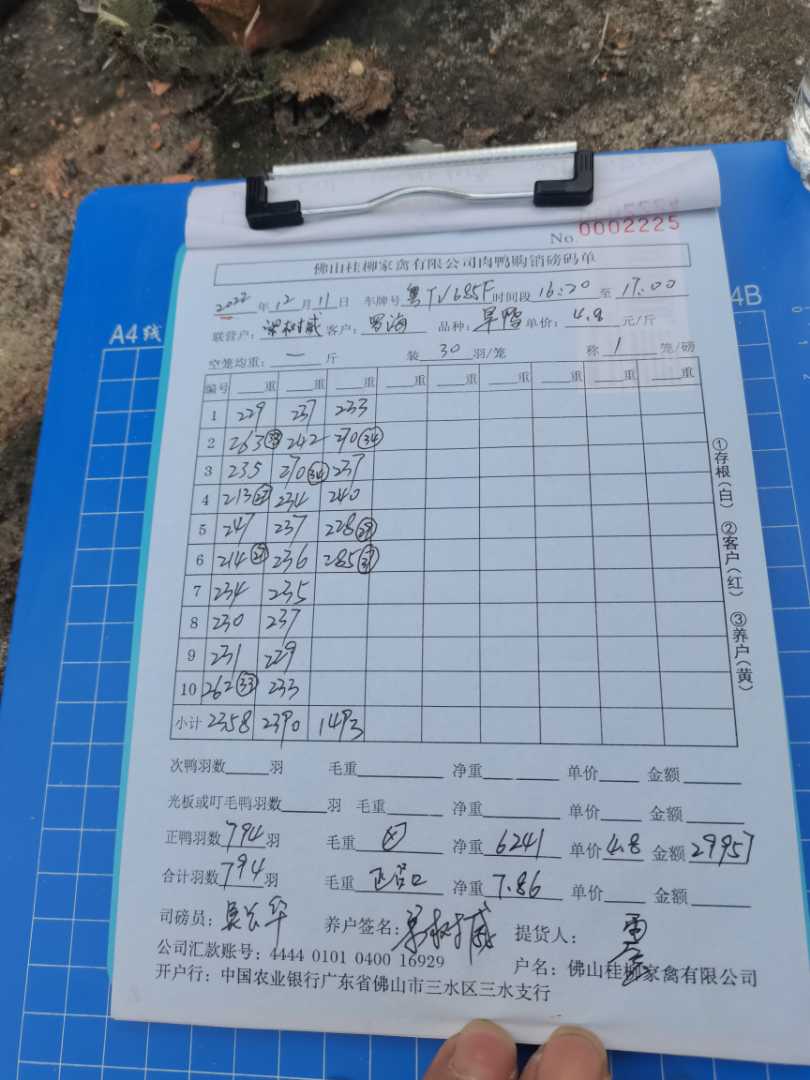 No. 0002225
佛山桂柳家禽有限公司肉鸭购销磅码单
2022年12月11日 车牌号 粤TV685F 时间段 16:20 至 17:00
联营户: 梁树威 客户: 罗海 品种: 旱鸭 单价: 4.8 元/斤
空笼均重: 一 斤 装 30 羽/笼 称 1 笼/磅
编号 重 重 重 重 重 重 重 重
1 229 237 233
2 263 33 242 270 34
3 235 270 34 237
4 213 27 234 240
5 247 237 228 29
6 214 27 236 285
7 234 235
8 230 237
9 231 229
10 262 33 233
小计 2358 2390 1493
①存根(白) ②客户(红) ③养户(黄)
次鸭羽数 羽 毛重 净重 单价 金额
光板或叮毛鸭羽数 羽 毛重 净重 单价 金额
正鸭羽数 794 羽 毛重 净重 6241 单价 4.8 金额 29957
合计羽数 794 羽 毛重 净重 7.86 单价 金额
司磅员: 养户签名: 提货人:
公司汇款账号: 4444 0101 0400 16929 户名: 佛山桂柳家禽有限公司
开户行: 中国农业银行广东省佛山市三水区三水支行
A4线
A4B
0 1 2